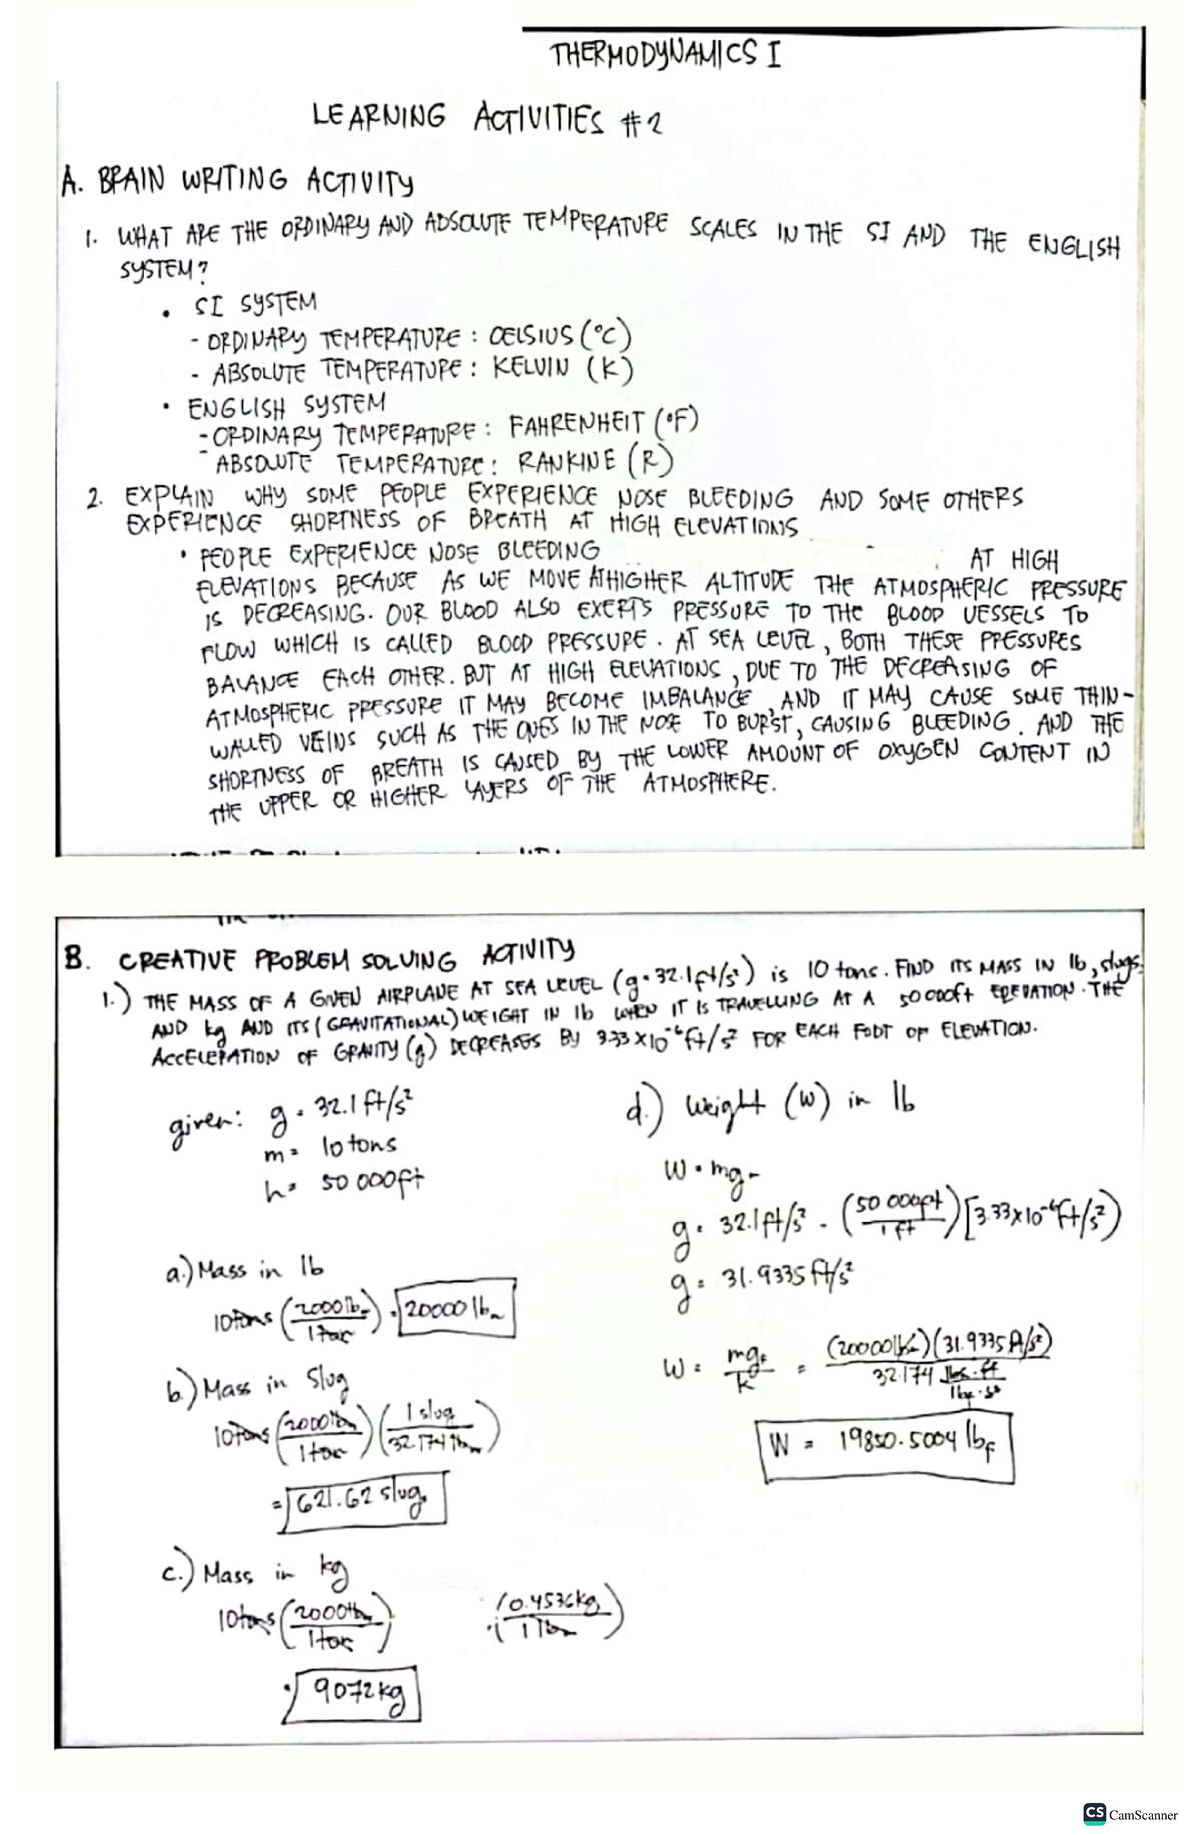 THERMODYNAMICS I
LEARNING ACTIVITIES #2
A. BRAIN WRITING ACTIVITY
1. WHAT ARE THE ORDINARY AND ABSOLUTE TEMPERATURE SCALES IN THE SI AND THE ENGLISH
SYSTEM?
• SI SYSTEM
- ORDINARY TEMPERATURE : CELSIUS (°C)
- ABSOLUTE TEMPERATURE : KELVIN (K)
• ENGLISH SYSTEM
- ORDINARY TEMPERATURE : FAHRENHEIT (°F)
- ABSOLUTE TEMPERATURE : RANKINE (R)
2. EXPLAIN WHY SOME PEOPLE EXPERIENCE NOSE BLEEDING AND SOME OTHERS
EXPERIENCE SHORTNESS OF BREATH AT HIGH ELEVATIONS
• PEOPLE EXPERIENCE NOSE BLEEDING AT HIGH
ELEVATIONS BECAUSE AS WE MOVE AT HIGHER ALTITUDE THE ATMOSPHERIC PRESSURE
IS DECREASING. OUR BLOOD ALSO EXERTS PRESSURE TO THE BLOOD VESSELS TO
FLOW WHICH IS CALLED BLOOD PRESSURE. AT SEA LEVEL, BOTH THESE PRESSURES
BALANCE EACH OTHER. BUT AT HIGH ELEVATIONS, DUE TO THE DECREASING OF
ATMOSPHERIC PRESSURE IT MAY BECOME IMBALANCE, AND IT MAY CAUSE SOME THIN-
WALLED VEINS SUCH AS THE ONES IN THE NOSE TO BURST, CAUSING BLEEDING. AND THE
SHORTNESS OF BREATH IS CAUSED BY THE LOWER AMOUNT OF OXYGEN CONTENT IN
THE UPPER OR HIGHER LAYERS OF THE ATMOSPHERE.
B. CREATIVE PROBLEM SOLVING ACTIVITY
1.) THE MASS OF A GIVEN AIRPLANE AT SEA LEVEL (g = 32.1 ft/s²) is 10 tons. FIND ITS MASS IN lb, slugs,
AND kg AND ITS (GRAVITATIONAL) WEIGHT IN lb WHEN IT IS TRAVELLING AT A 50 000ft ELEVATION. THE
ACCELERATION OF GRAVITY (g) DECREASES BY 3.33 x 10⁻⁶ ft/s² FOR EACH FOOT OF ELEVATION.
given: g = 32.1 ft/s²
m = 10 tons
h = 50 000ft
a.) Mass in lb
10 tons (2000 lbm / 1 ton) = 20000 lbm
b.) Mass in Slug
10 tons (2000 lbm / 1 ton) (1 slug / 32.174 lbm)
= 621.62 slugs
c.) Mass in kg
10 tons (2000 lbm / 1 ton) (0.4536 kg / 1 lbm)
= 9072 kg
d.) Weight (W) in lb
W = mg
g = 32.1 ft/s² - (50 000ft / 1 ft) [3.33 x 10⁻⁶ ft/s²)
g = 31.9335 ft/s²
W = mg / k = (20000 lbm)(31.9335 ft/s²) / 32.174 lbm·ft / lbf·s²
W = 19850.5004 lbf
CS CamScanner